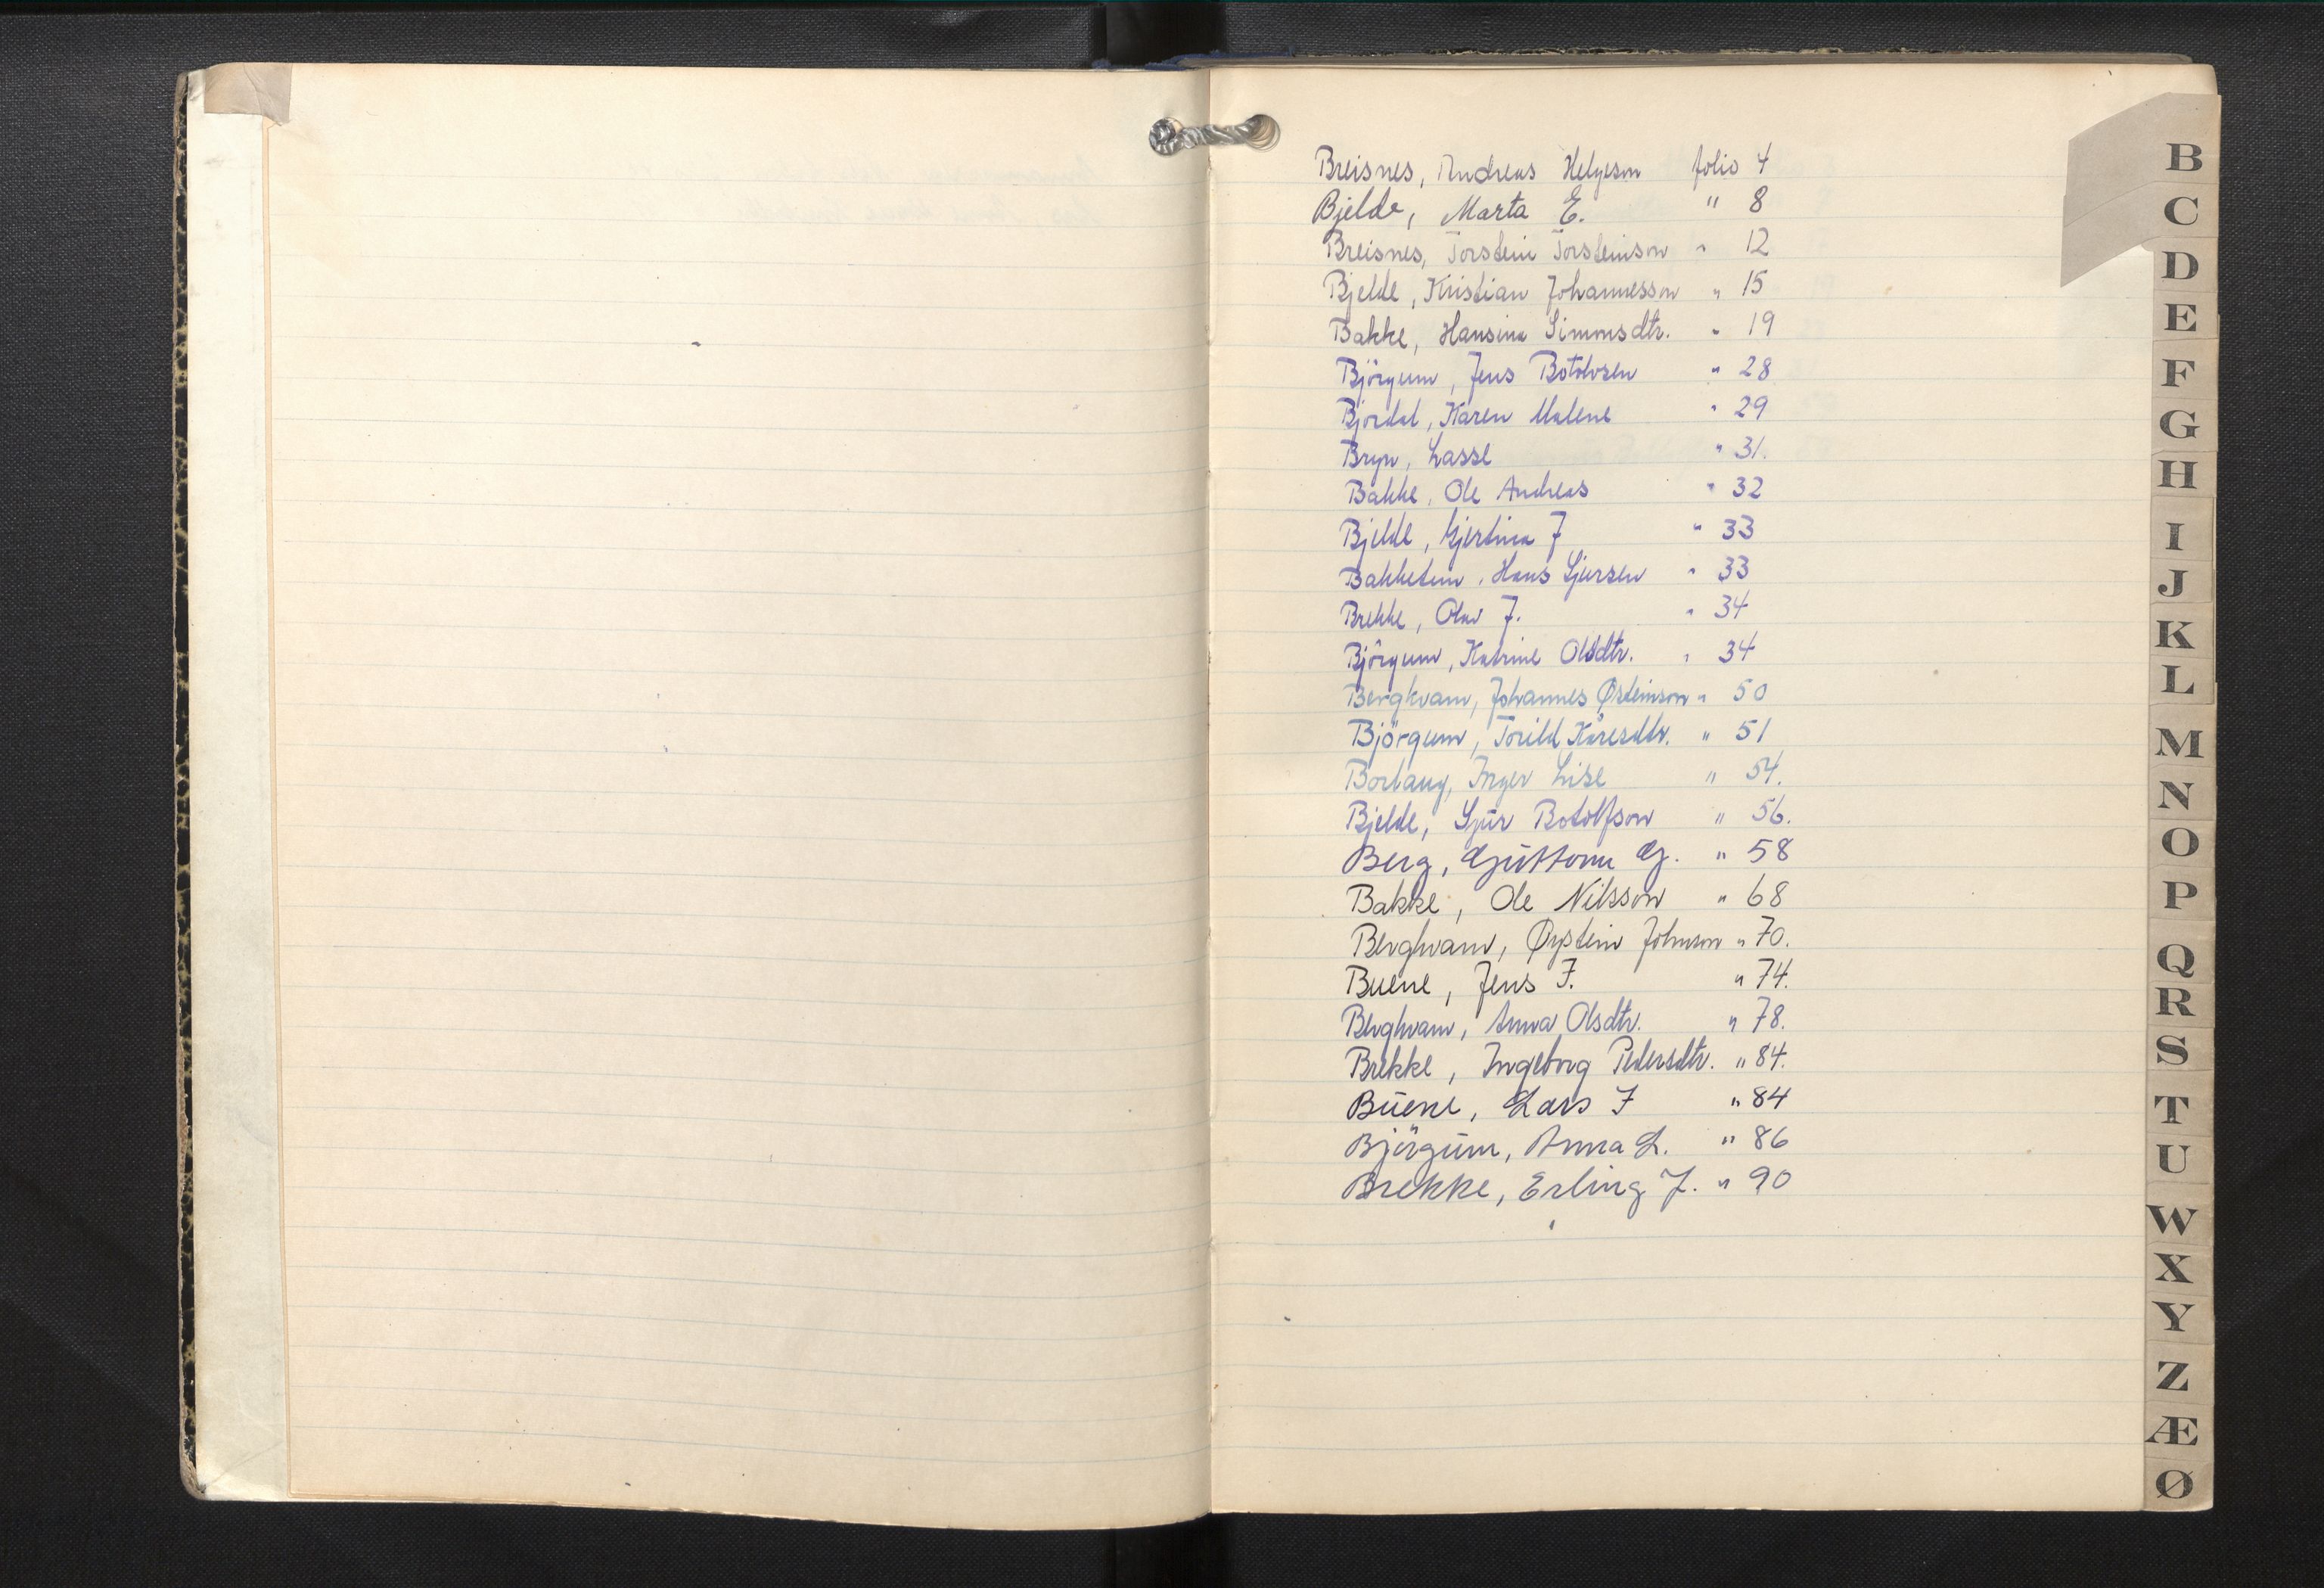 Breisnes, Andreas Helgeson folio 4
Bjelde, Marta E. " 8
Breisnes, Torstein Torsteinson " 12
Bjelde, Kristian Johannesson " 15
Bakke, Hansina Simonsdtr. " 19
Björgum, Jens Botolvsen " 28
Bjordal, Karen Malene " 29
Bryn, Lasse " 31.
Bakke, Ole Andreas " 32
Bjelde, Gjertina J " 33
Bakketun, Hans Sjursen " 33
Brekke, Olav J. " 34
Björgum, Katrine Olsdtr. " 34
Bergkvam, Johannes Østeinson " 50
Björgum, Torild Kåresdtr. " 51
Borlaug, Inger Lise " 54.
Bjelde, Sjur Botolfson " 56.
Berg, Guttorm G. " 58
Bakke, Ole Nilsson " 68
Bergkvam, Øystein Johnson " 70.
Buene, Jens J. " 74.
Bergkvam, Anna Olsdtr. " 78.
Brekke, Ingeborg Pedersdtr. " 84.
Buene, Lars J " 84
Björgum, Anna L. " 86
Brekke, Erling J. " 90
B
C
D
E
F
G
H
I
J
K
L
M
N
O
P
Q
R
S
T
U
W
X
Y
Z
Æ
Ø